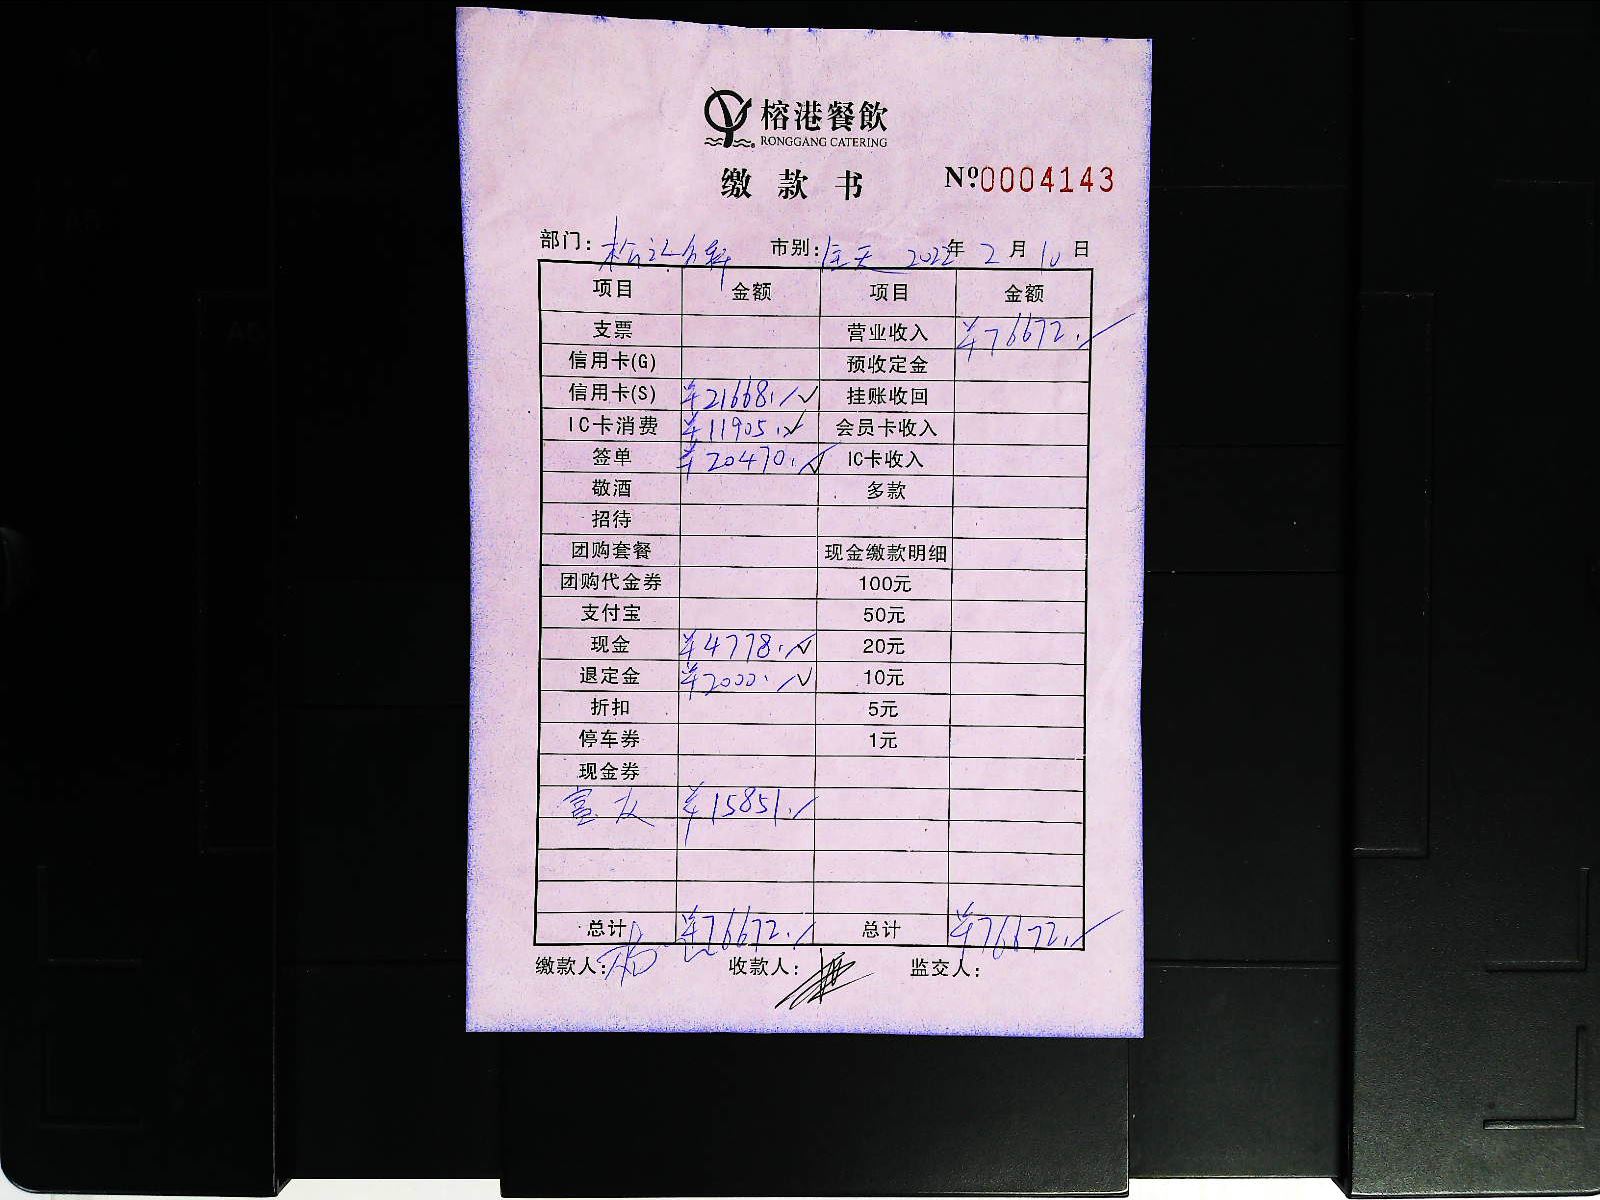 榕港餐飲
RONGGANG CATERING
缴款书 Nº0004143
部门: 市别: 全天 2022年 2月 10日
项目 金额 项目 金额
支票 营业收入 ¥76672.
信用卡(G) 预收定金
信用卡(S) ¥21668. 挂账收回
IC卡消费 ¥11905. 会员卡收入
签单 ¥20470. IC卡收入
敬酒 多款
招待
团购套餐 现金缴款明细
团购代金券 100元
支付宝 50元
现金 ¥4778. 20元
退定金 ¥2000. 10元
折扣 5元
停车券 1元
现金券
富友 ¥15851.
总计 ¥76672. 总计 ¥76672.
缴款人: 收款人: 监交人: